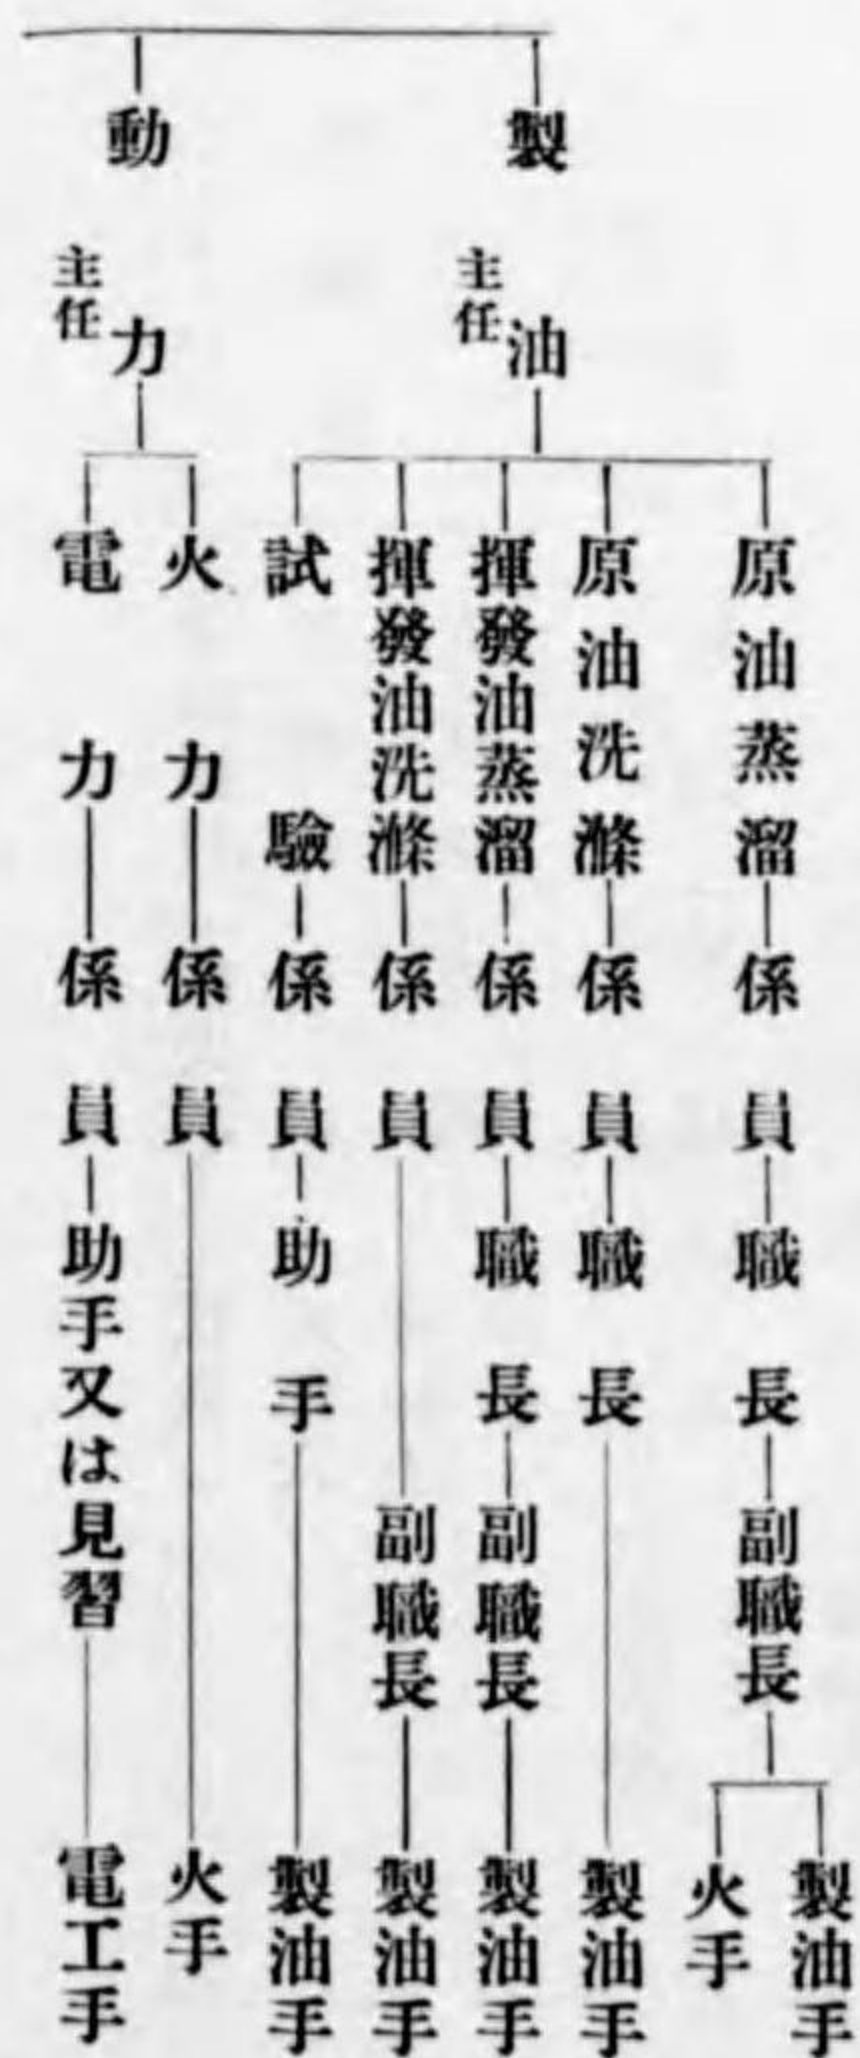 製油
主任
原油蒸溜係員職長副職長
製油手
火手
原油洗滌係員職長製油手
揮發油蒸溜係員職長副職長製油手
揮發油洗滌係員副職長製油手
試驗係員助手製油手
動力
主任
火力係員火手
電力係員助手又は見習電工手